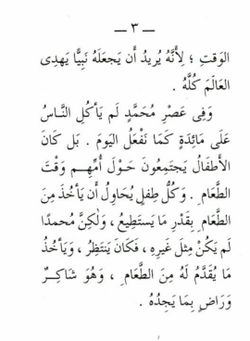 — ٣ —
الوَقتِ ؛ لِأَنَّهُ يُرِيدُ أَن يَجعَلَهُ نَبِيًّا يَهدِى
العَالَمَ كُلَّهُ .
وَفِى عَصْرِ مُحَمَّدٍ لَم يَأكُلِ النَّاسُ
عَلَى مَائِدَةٍ كَمَا نَفْعَلُ اليَومَ . بَل كَانَ
الأَطفَالُ يَجتَمِعُونَ حَوْلَ أُمِّهِم وَقْتَ
الطَّعَامِ . وَكُلُّ طِفلٍ يُحَاوِلُ أَن يَأخُذَ مِنَ
الطَّعَامِ بِقَدْرِ مَا يَستَطِيعُ ، وَلكِنَّ مُحمدًا
لَم يَكُنْ مِثلَ غَيرِهِ ، فَكَانَ يَنتَظِرُ ، وَيَأخُذُ
مَا يُقَدَّمُ لَهُ مِنَ الطَّعَامِ ، وَهُوَ شَاكِرٌ
وَرَاضٍ بِمَا يَجِدُهُ .